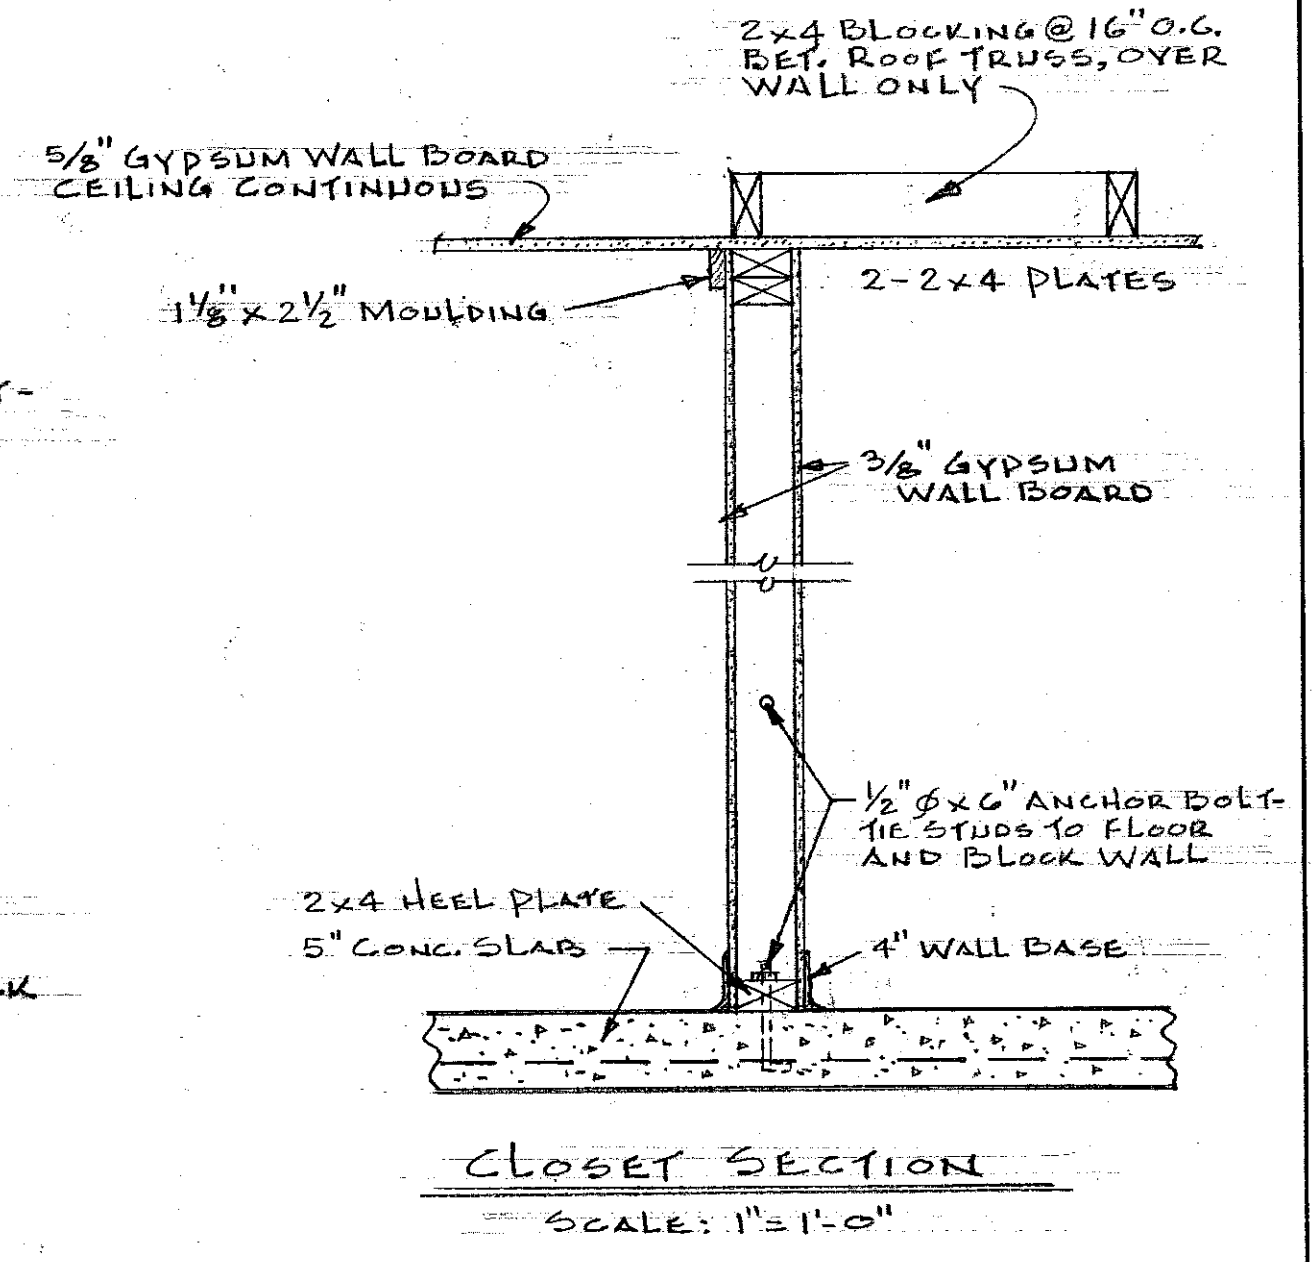 2x4 BLOCKING @ 16" O.C.
BET. ROOF TRUSS, OVER
WALL ONLY
5/8" GYPSUM WALL BOARD
CEILING CONTINUOUS
2-2x4 PLATES
1 1/8" x 2 1/2" MOULDING
3/8" GYPSUM
WALL BOARD
1/2" ϕ x 6" ANCHOR BOLT-
TIE STUDS TO FLOOR
AND BLOCK WALL
2x4 HEEL PLATE
5" CONC. SLAB
4" WALL BASE
CLOSET SECTION
SCALE: 1" = 1'-0"